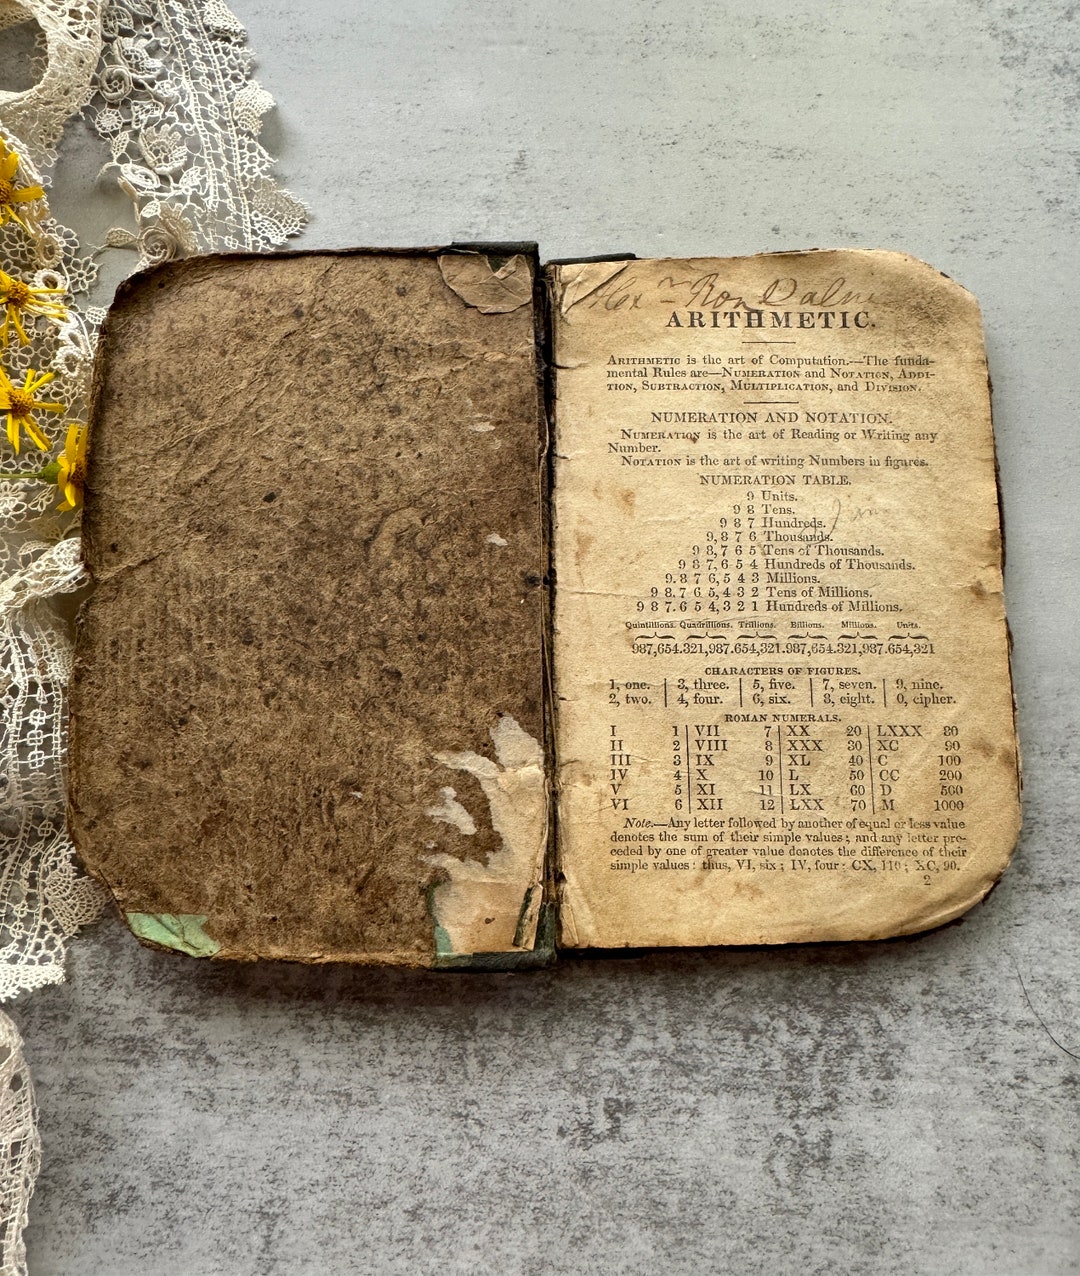 ARITHMETIC.
ARITHMETIC is the art of Computation.—The funda-
mental Rules are—NUMERATION and NOTATION, ADDI-
TION, SUBTRACTION, MULTIPLICATION, and DIVISION.
NUMERATION AND NOTATION.
NUMERATION is the art of Reading or Writing any
Number.
NOTATION is the art of writing Numbers in figures.
NUMERATION TABLE.
9 Units.
9 8 Tens.
9 8 7 Hundreds.
9,8 7 6 Thousands.
9 8,7 6 5 Tens of Thousands.
9 8 7,6 5 4 Hundreds of Thousands.
9.8 7 6,5 4 3 Millions.
9 8.7 6 5,4 3 2 Tens of Millions.
9 8 7.6 5 4,3 2 1 Hundreds of Millions.
Quintillions. Quadrillions. Trillions. Billions. Millions. Units.
987,654.321,987.654,321.987,654.321,987.654,321
CHARACTERS OF FIGURES.
1, one. | 3, three. | 5, five. | 7, seven. | 9, nine.
2, two. | 4, four. | 6, six. | 8, eight. | 0, cipher.
ROMAN NUMERALS.
I 1 | VII 7 | XX 20 | LXXX 80
II 2 | VIII 8 | XXX 30 | XC 90
III 3 | IX 9 | XL 40 | C 100
IV 4 | X 10 | L 50 | CC 200
V 5 | XI 11 | LX 60 | D 500
VI 6 | XII 12 | LXX 70 | M 1000
Note.—Any letter followed by another of equal or less value
denotes the sum of their simple values; and any letter pre-
ceded by one of greater value denotes the difference of their
simple values: thus, VI, six; IV, four: CX, 110; XC, 90.
2